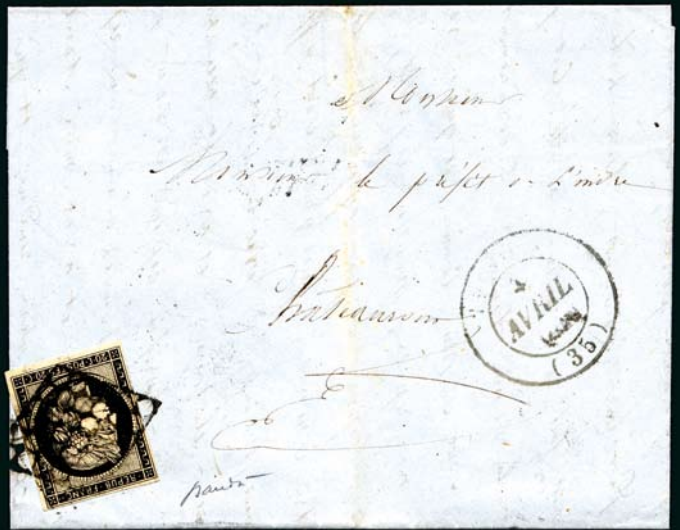 Monsieur
Monsieur le préfet de l'indre
Châteauroux
4
AVRIL
(35)
20 c. POSTES 20 c.
REPUB. FRANC.